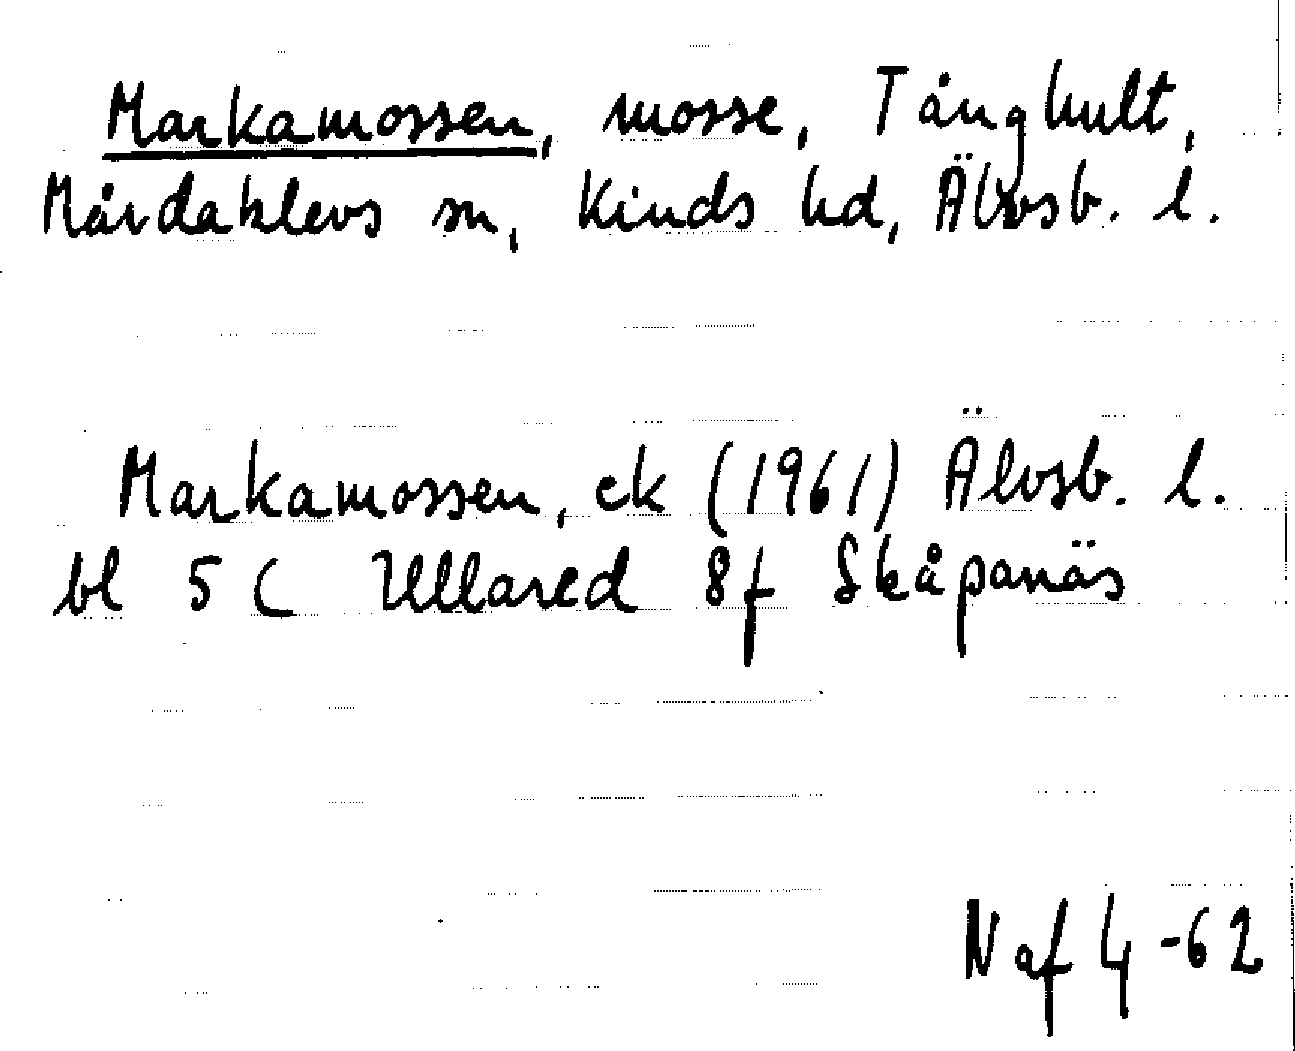 Markamossen, mosse, Tånghult,
Mårdaklevs sn, Kinds hd, Älvsb. l.
Markamossen, ek (1961) Älvsb. l.
bl 5 C Ullared 8f Skåpanäs
N af 4 -62